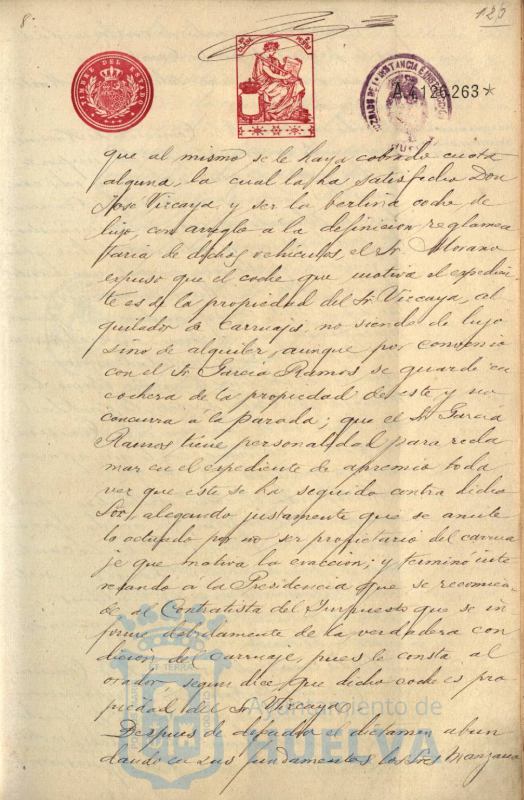 8ª
120
TIMBRE DEL ESTADO
A.4126.263*
que al mismo se le haya cobrado cuota
alguna, la cual la ha satisfecho Don
José Vizcaya, y ser la berlina coche de
lujo, con arreglo á la definicion reglamen
taria de dichos vehículos, el Sr. Morano
expuso que el coche que motiva el expedien
te es de la propiedad del Sr. Vizcaya, al
quilador de carruajes, no siendo de lujo
sino de alquiler, aunque por convenio
con el Sr. Garcia Ramos se guarde en
cochera de la propiedad de este y no
concurra á la parada; que el Sr. Garcia
Ramos tiene personalidad para recla
mar en el expediente de apremio toda
vez que este se ha seguido contra dicho
Sor., alegando justamente que se anule
lo actuado por no ser propietario del carrua
je que motiva la exaccion; y terminó inte
resando á la Presidencia que se recomien
de al Contratista del Impuesto que se in
forme debidamente de la verdadera con
dicion del carruaje, pues le consta al
orador segun dice, que dicho coche es pro
piedad del Sr. Vizcaya.
Despues de defender el dictámen abun
dando en sus fundamentos los Sres. Manzano
Ayuntamiento de
HUELVA